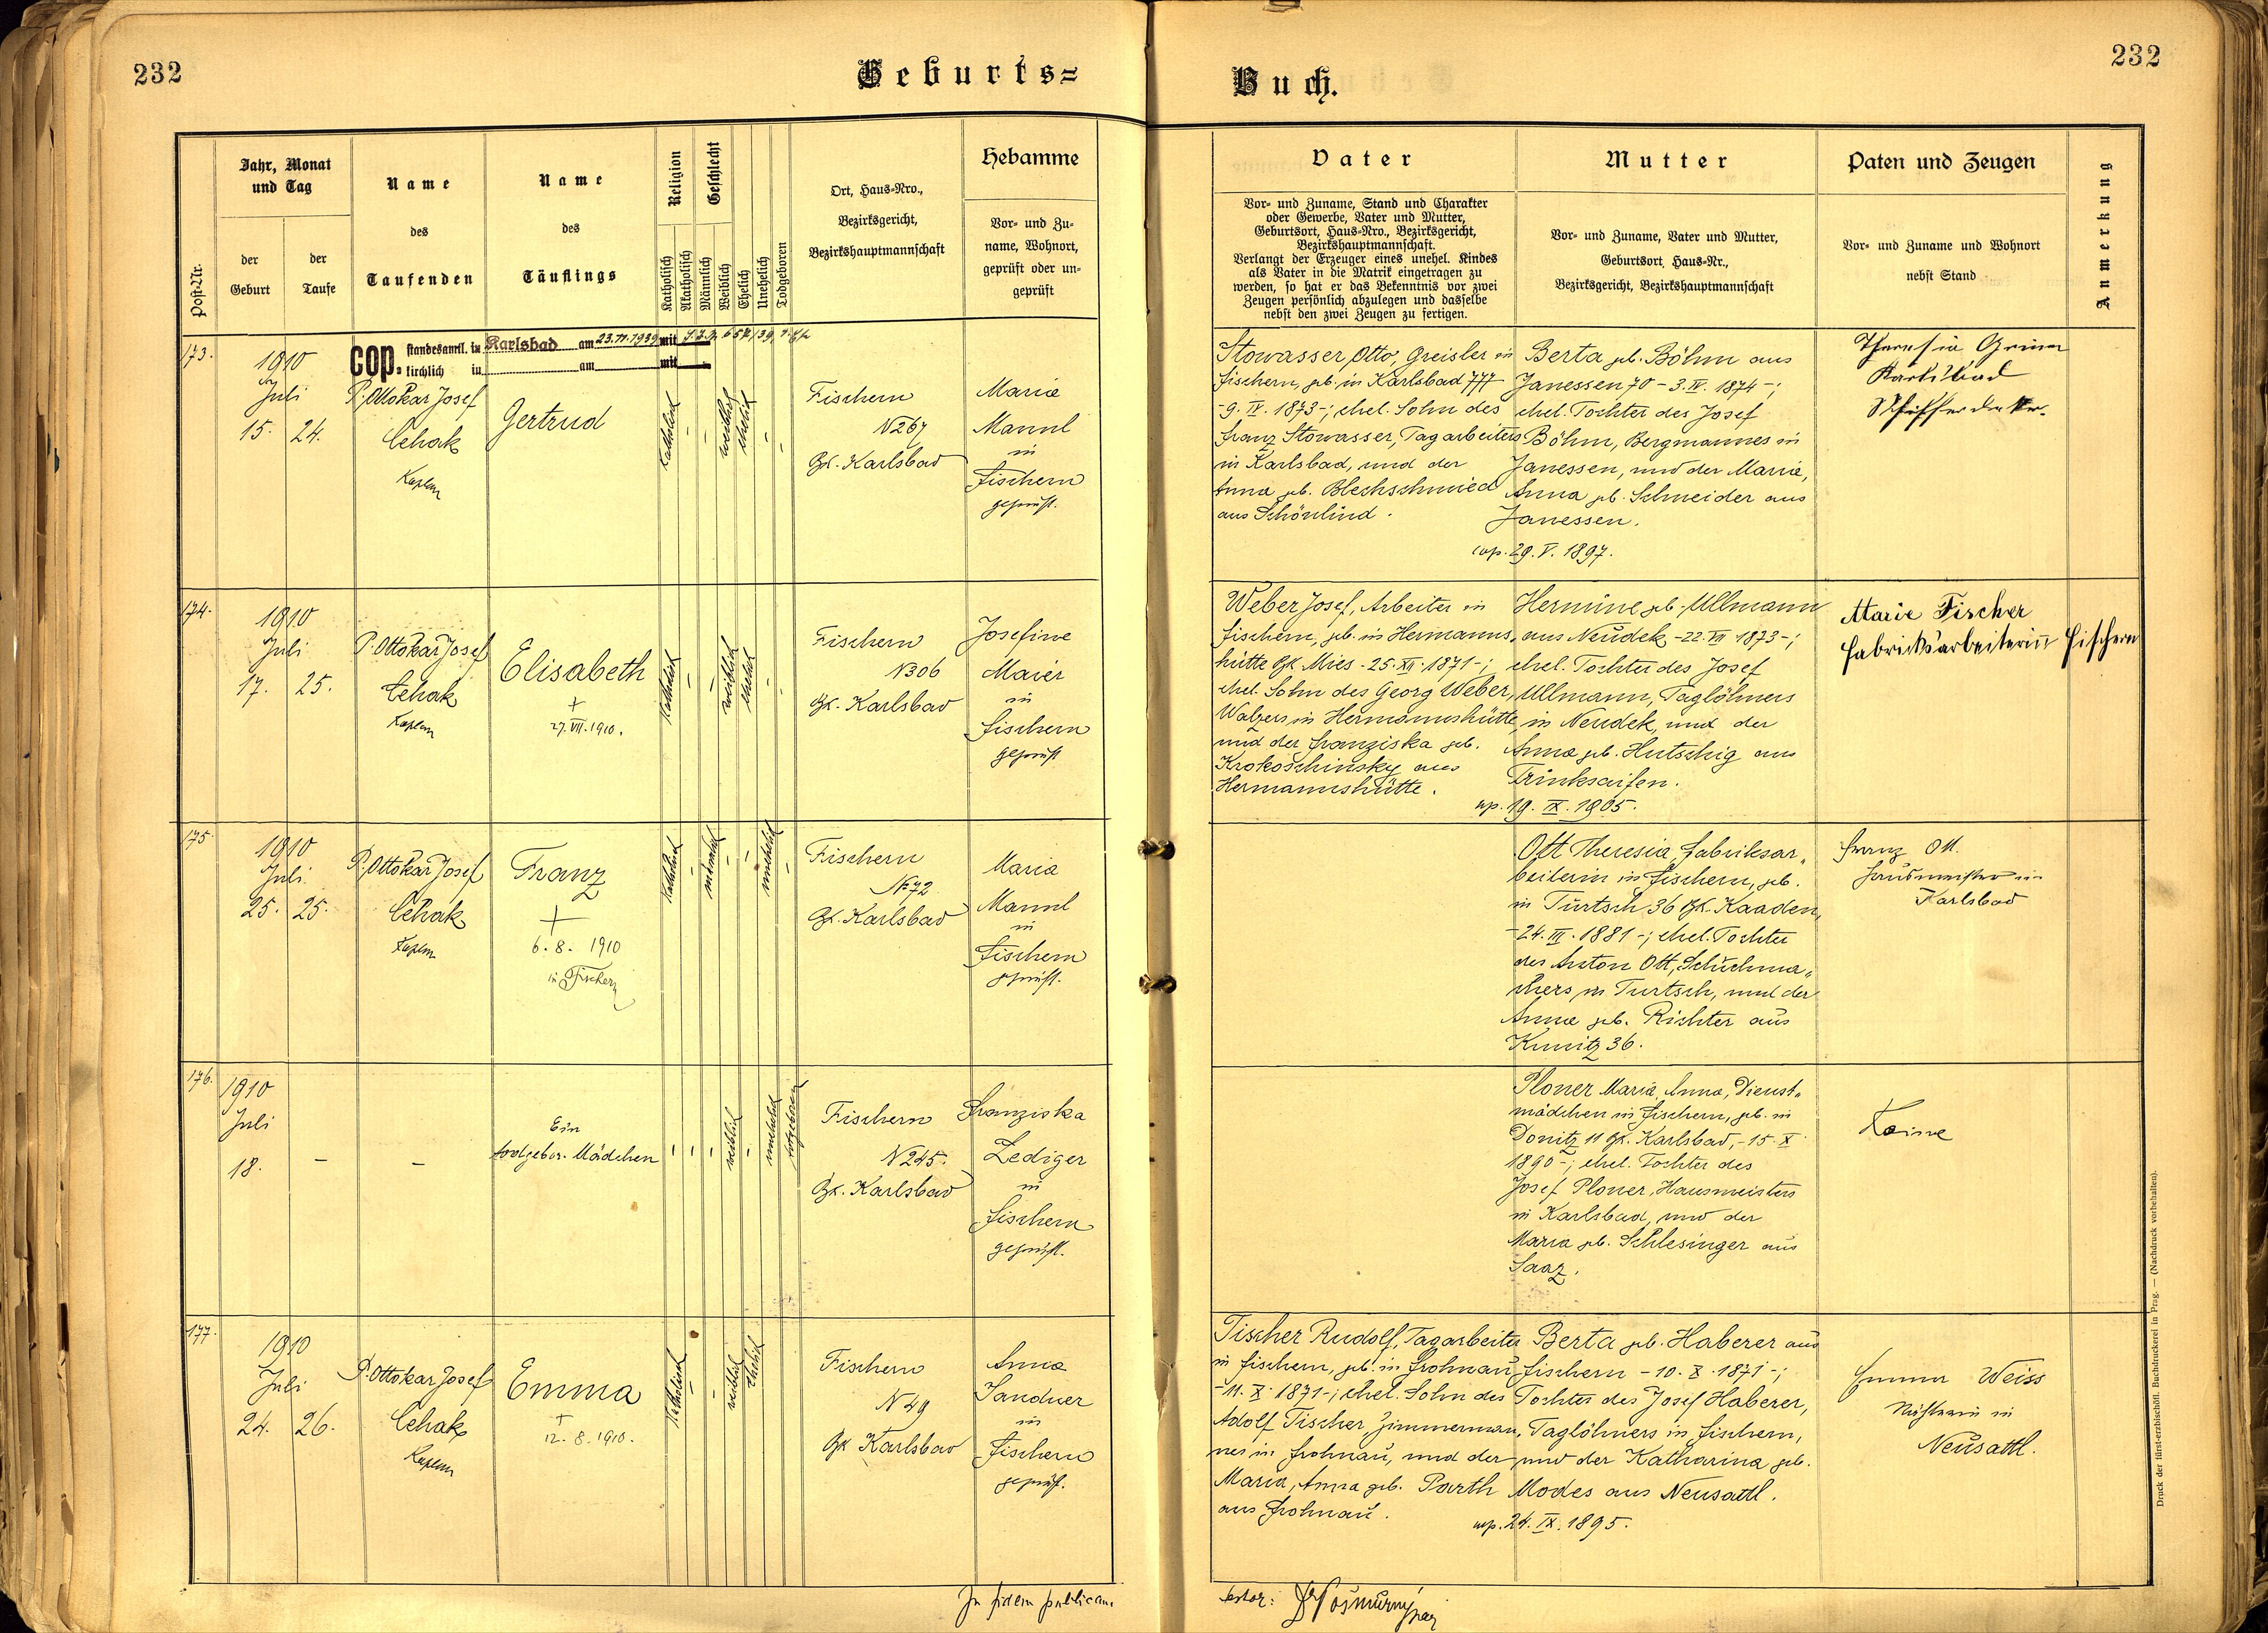 232
Geburts=
Buch.
232
Post-Nr.
Jahr, Monat
und Tag
der
Geburt
der
Taufe
Name
des
Taufenden
Name
des
Täuflings
Religion
Katholisch
Akatholisch
Geschlecht
Männlich
Weiblich
Ehelich
Unehelich
Todgeboren
Ort, Haus=Nro.,
Bezirksgericht,
Bezirkshauptmannschaft
Hebamme
Vor= und Zu=
name, Wohnort,
geprüft oder un=
geprüft
Vater
Vor= und Zuname, Stand und Charakter
oder Gewerbe, Vater und Mutter,
Geburtsort, Haus=Nro., Bezirksgericht,
Bezirkshauptmannschaft.
Verlangt der Erzeuger eines unehel. Kindes
als Vater in die Matrik eingetragen zu
werden, so hat er das Bekenntnis vor zwei
Zeugen persönlich abzulegen und dasselbe
nebst den zwei Zeugen zu fertigen.
Mutter
Vor= und Zuname, Vater und Mutter,
Geburtsort, Haus=Nr.,
Bezirksgericht, Bezirkshauptmannschaft
Paten und Zeugen
Vor= und Zuname und Wohnort
nebst Stand
Anmerkung
173.
1910
Juli
15. 24.
cop. standesamtl. in Karlsbad am 23.11.1939 mit
kirchlich in am mit
P. Ottokar Josef
Čehak
Kaplan
Gertrud
katholisch
-
-
weiblich
ehelich
-
-
Fischern
N 267
Bz. Karlsbad
Marie
Mannl
in
Fischern
geprüft.
Stowasser Otto, Greisler in
Fischern, geb. in Karlsbad 777
-9. IV. 1873-; ehel. Sohn des
Franz Stowasser, Tagarbeiters
in Karlsbad, und der
Anna geb. Blechschmied
aus Schönlind.
Berta geb. Böhm aus
Janessen 70 - 3. IV. 1874 -;
ehel. Tochter des Josef
Böhm, Bergmannes in
Janessen, und der Maria,
Anna geb. Schneider aus
Janessen.
cop. 29. V. 1897.
Theresia
Karlsbad
174.
1910
Juli
17. 25.
P. Ottokar Josef
Čehak
Kaplan
Elisabeth
+
27. VII. 1910.
katholisch
-
-
weiblich
ehelich
-
-
Fischern
N 306
Bz. Karlsbad
Josefine
Maier
in
Fischern
geprüft
Weber Josef, Arbeiter in
Fischern, geb. in Hermanns,
hütte Bz. Mies - 25. XII. 1871 -;
ehel. Sohn des Georg Weber,
Walzers in Hermannshütte,
und der Franziska geb.
Krokoschinsky aus
Hermannshütte.
Hermine geb. Ullmann
aus Neudek - 22. VII 1873 -;
ehel. Tochter des Josef
Ullmann, Taglöhners
in Neudek, und der
Anna geb. Hutschig aus
Trinksaifen.
cop. 19. IX. 1905.
Marie Fischer
Fabriksarbeiterin Fischern
175.
1910
Juli
25. 25.
P. Ottokar Josef
Čehak
Kaplan
Franz
+
6. 8. 1910
in Fischern
katholisch
-
männlich
-
-
unehelich
-
Fischern
No 72
Bz. Karlsbad
Maria
Mannl
in
Fischern
geprüft.
Ott Theresia, Fabriksar„
beiterin in Fischern, geb.
in Turtsch 36 Bz. Kaaden,
-24. III. 1881 -; ehel. Tochter
des Anton Ott, Schuhma„
chers in Turtsch, und der
Anna geb. Richter aus
Kunitz 36.
Franz Ott.
Hausmeister in
Karlsbad
176.
1910
Juli
18.
-
-
Ein
todgebor. Mädchen
-
-
-
weiblich
-
unehelich
totgeboren
Fischern
N 245.
Bz. Karlsbad
Franziska
Lediger
in
Fischern
geprüft.
Ploner Maria Anna, Dienst„
mädchen in Fischern, geb. in
Donitz 11 Bz. Karlsbad, - 15. X
1890 -; ehel. Tochter des
Josef Ploner, Hausmeisters
in Karlsbad, und der
Maria geb. Schlesinger aus
Saaz.
Keine
177.
1910
Juli
24. 26.
P. Ottokar Josef
Čehak
Kaplan
Emma
+
12. 8. 1910.
katholisch
-
-
weiblich
ehelich
Fischern
N 49
Bz Karlsbad
Anna
Sandner
in
Fischern
geprüf.
Tischer Rudolf, Tagarbeiter
in Fischern, geb. in Frohnau
-11. X. 1871 -; ehel. Sohn des
Adolf Tischer, Zimmerman„
nes in Frohnau, und der
Maria, Anna geb. Parth
aus Frohnau.
Berta geb. Haberer aus
Fischern - 10. X. 1871 -;
Tochter des Josef Haberer,
Taglöhners in Fischern,
und der Katharina geb.
Modes aus Neusattl.
cop. 24. IX. 1895.
Emma Weiss
in
Neusattl.
In fidem publicam
Druck der fürst-erzbischöfl. Buchdruckerei in Prag. — (Nachdruck vorbehalten).